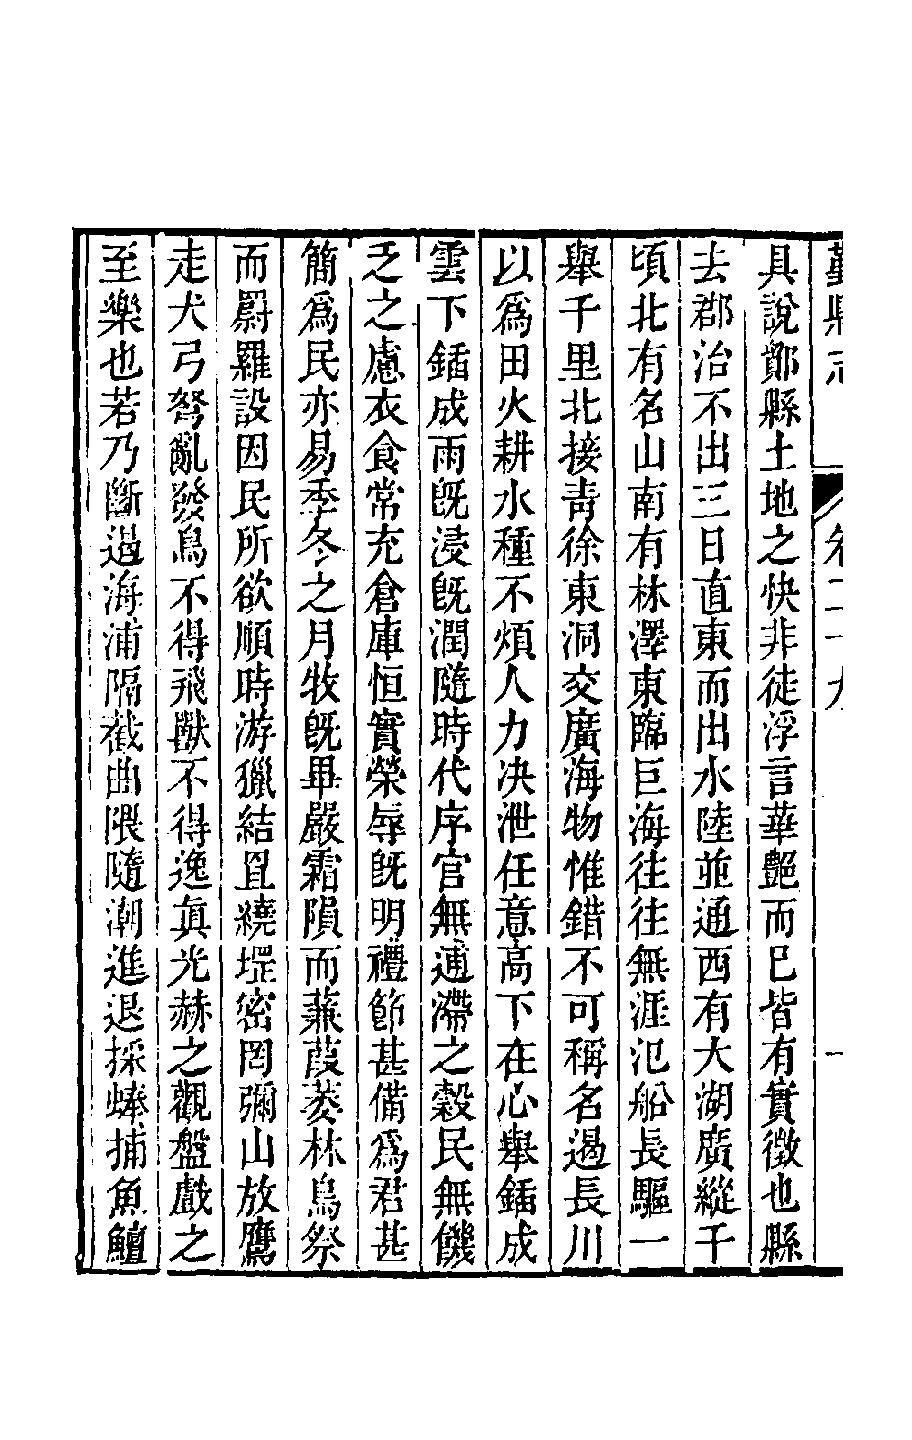 鄞縣志 卷二十九 一
具說鄮縣土地之快非徒浮言華艷而已皆有實徵也縣
去郡治不出三日直東而出水陸並通西有大湖廣縱千
頃北有名山南有林澤東臨巨海往往無涯氾船長驅一
舉千里北接青徐東洞交廣海物惟錯不可稱名遏長川
以爲田火耕水種不煩人力决泄任意高下在心舉鍤成
雲下鍤成雨旣浸旣潤隨時代序官無逋滯之穀民無饑
乏之慮衣食常充倉庫恒實榮辱旣明禮節甚備爲君甚
簡爲民亦易季冬之月牧旣畢嚴霜隕而蒹葭萎林鳥祭
而罻羅設因民所欲順時游獵結罝繞堽密罔彌山放鷹
走犬弓弩亂發鳥不得飛獸不得逸眞光赫之觀盤戲之
至樂也若乃斷遏海浦隔截曲隈隨潮進退採蜯捕魚鱣